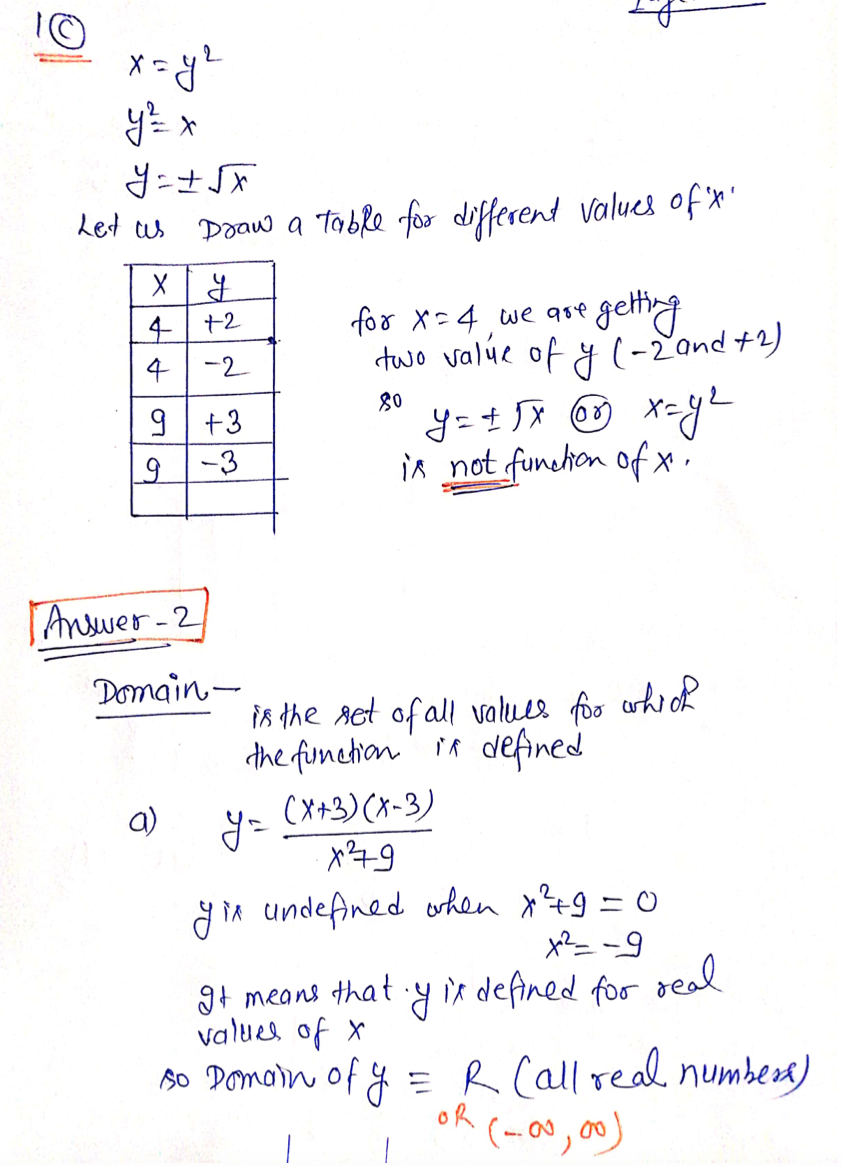 1 ⓒ
x = y²
y² = x
y = ± √x
Let us Draw a Table for different values of 'x'
x y
4 +2
4 -2
9 +3
9 -3
for x = 4, we are getting
two value of y (-2 and +2)
so y = ± √x or x = y²
is not function of x.
Answer - 2
Domain - is the set of all values for which
the function is defined
a) y = (x+3)(x-3) / x²+9
y is undefined when x²+9 = 0
x² = -9
It means that y is defined for real
values of x
so Domain of y ≡ R (all real numbers)
OR (-∞, ∞)